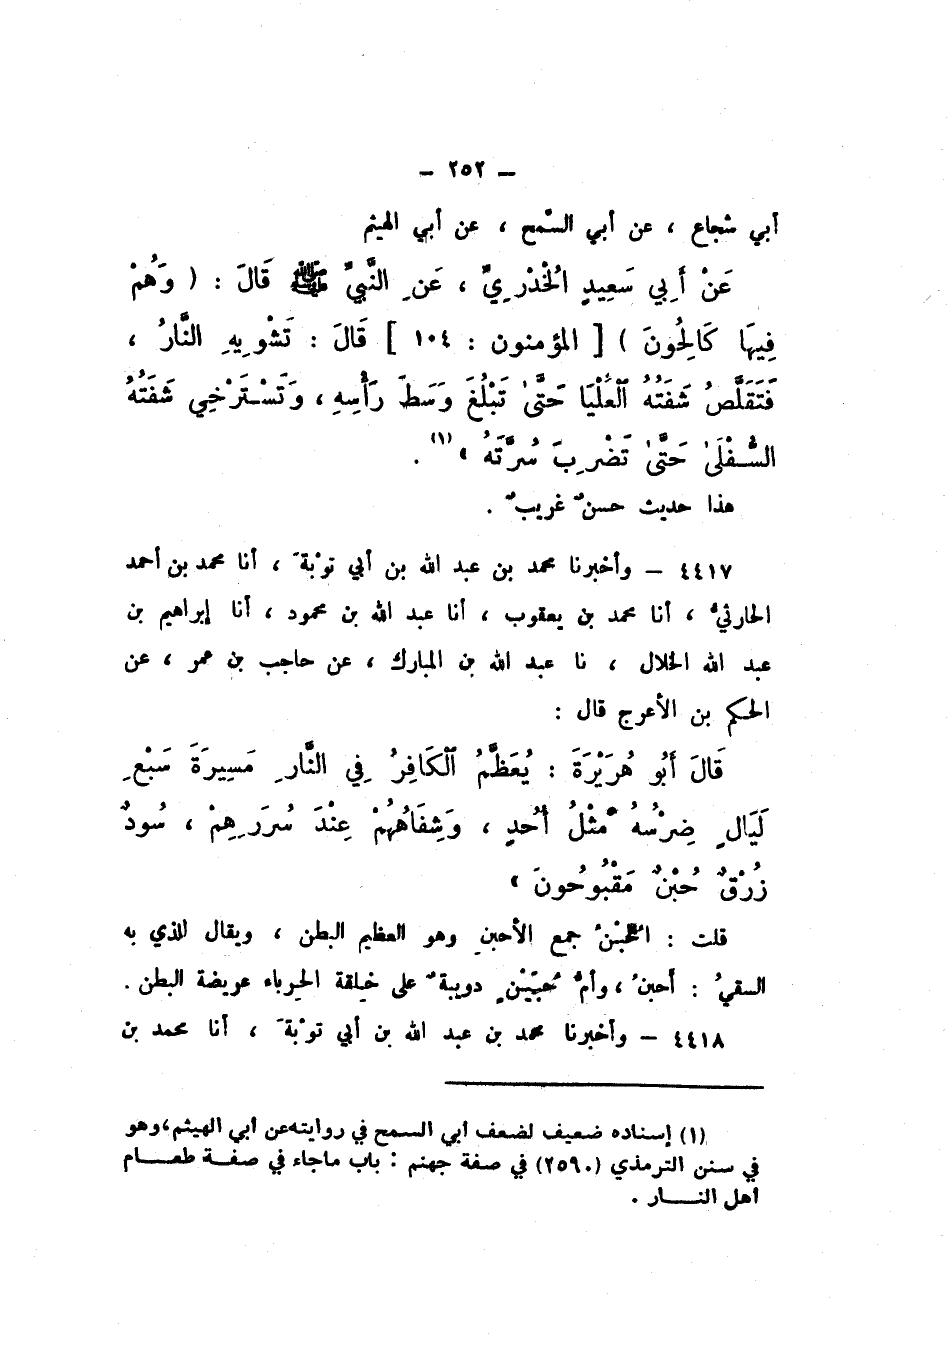 – ٢٥٢ –
أبي شجاع ، عن أبي السَّمح ، عن أبي الهيثم
عَنْ أَبِي سَعِيدٍ الْخُدْرِيِّ ، عَنِ النَّبِيِّ ﷺ قَالَ : ( وَهُمْ
فِيهَا كَالِحُونَ ) [ المؤمنون : ١٠٤ ] قَالَ : تَشْوِيهِ النَّارُ ،
فَتَقَلَّصُ شَفَتُهُ الْعُلْيَا حَتَّىٰ تَبْلُغَ وَسَطَ رَأْسِهِ ، وَتَسْتَرْخِي شَفَتُهُ
السُّفْلَىٰ حَتَّىٰ تَضْرِبَ سُرَّتَهُ » (١) .
هذا حديث حسنٌ غريبٌ .
٤٤١٧ – وأخبرنا محمد بن عبد الله بن أبي توْبةَ ، أنا محمد بن أحمد
الحارثيُّ ، أنا محمد بن يعقوب ، أنا عبد الله بن محمود ، أنا إبراهيم بن
عبد الله الخلال ، نا عبد الله بن المبارك ، عن حاجب بن عمر ، عن
الحكم بن الأعرج قال :
قَالَ أَبُو هُرَيْرَةَ : يُعَظَّمُ الْكَافِرُ فِي النَّارِ مَسِيرَةَ سَبْعِ
لَيَالٍ ضِرْسُهُ مِثْلُ أُحُدٍ ، وَشِفَاهُهُمْ عِنْدَ سُرَرِهِمْ ، سُودٌ
زُرْقٌ حُبْنٌ مَقْبُوحُونَ »
قلت : الحُبْنُ جمع الأحبنِ وهو العظيم البطن ، ويقال للذي به
السقيُ : أحبنُ ، وأمُّ حُبَيْنٍ دويبةٌ على خلقة الحرباء عريضة البطن .
٤٤١٨ – وأخبرنا محمد بن عبد الله بن أبي توْبةَ ، أنا محمد بن
(١) إسناده ضعيف لضعف أبي السمح في روايته عن أبي الهيثم ، وهو
في سنن الترمذي (٢٥٩٠) في صفة جهنم : باب ماجاء في صفة طعام
أهل النار .